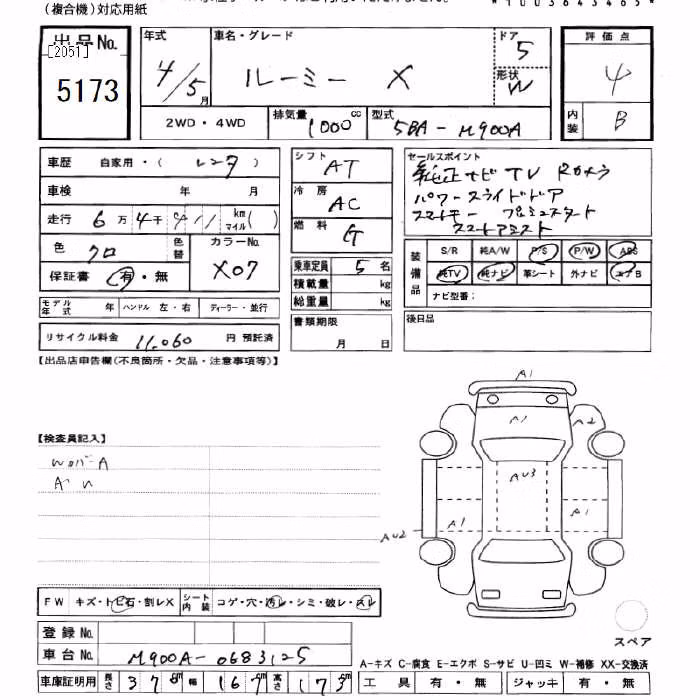 (複合機)対応用紙
*1003643465*
出品No.
[2051]
5173
年式
4/5月
車名・グレード
ルーミー X
ドア
5
形状
W
評価点
4
内装
B
2WD・4WD
排気量
1000cc
型式
5BA-M900A
車歴 自家用・(レンタ)
車検 年 月
走行 6万4千 km マイル( )
色 クロ
色替
カラーNo.
X07
保証書 有・無
モデル年式 年 ハンドル 左・右 ディーラー・並行
リサイクル料金 11,060 円 預託済
シフト AT
冷房 AC
燃料 G
乗車定員 5 名
積載量 kg
総重量 kg
書類期限
月 日
セールスポイント
純正ナビ TV Rカメラ
パワースライドドア
スマートキー プッシュスタート
スマートアシスト
装備品
S/R 純A/W P/S P/W ABS
純TV 純ナビ 革シート 外ナビ エアB
ナビ型番:
後日品
【出品店申告欄(不良箇所・欠品・注意事項等)】
【検査員記入】
A1
A1
AU3
A1
A1
AU2
スペア
FW キズ・トビ石・割レX シート内装 コゲ・穴・汚レ・シミ・破レ・スレ
登録No.
車台No. M900A-0683125
車庫証明用 長さ 370 幅 167 高さ 173
A-キズ C-腐食 E-エクボ S-サビ U-凹ミ W-補修 XX-交換済
工具 有・無 ジャッキ 有・無